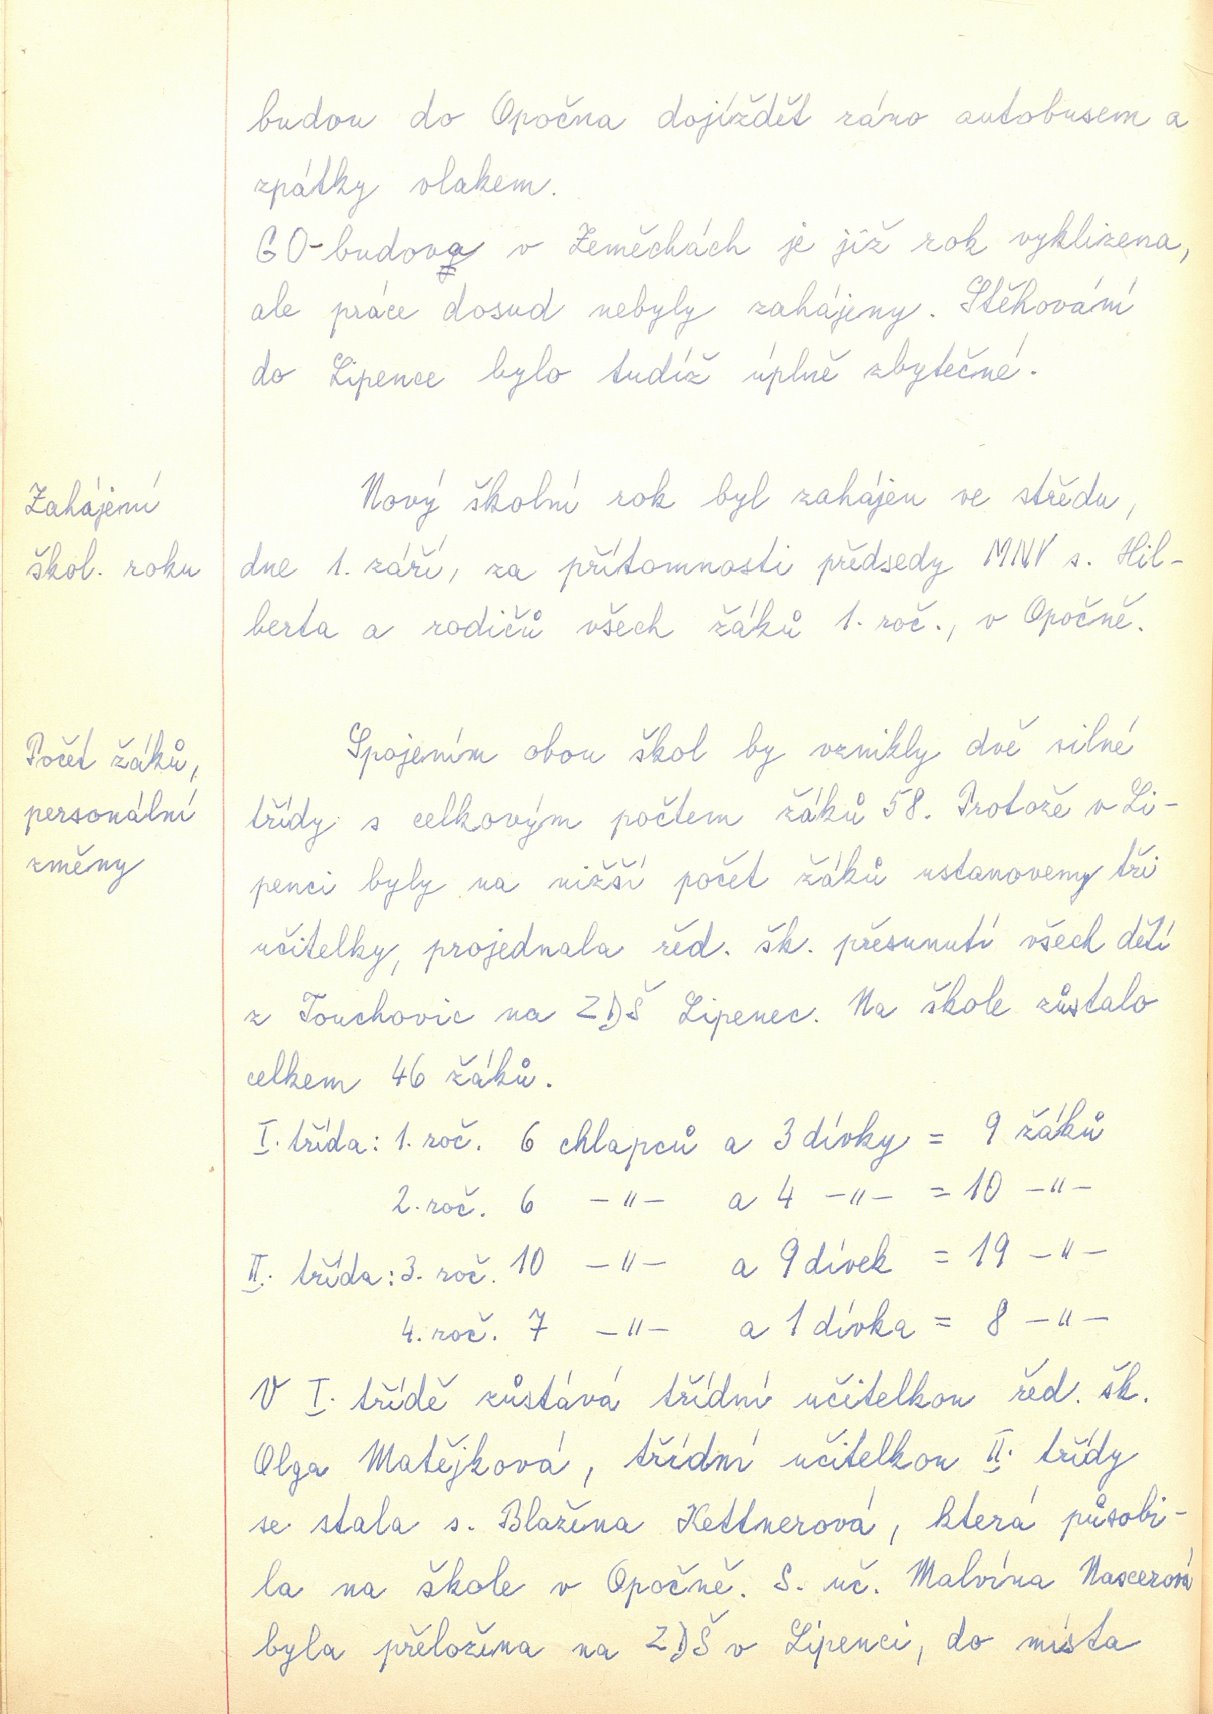 budou do Opočna dojíždět ráno autobusem a
zpátky vlakem.
GO-budova v Zeměchách je již rok vyklizena,
ale práce dosud nebyly zahájeny. Stěhování
do Lipence bylo tudíž úplně zbytečné.
Zahájení
škol. roku
Nový školní rok byl zahájen ve středu,
dne 1. září, za přítomnosti předsedy MNV s. Hil-
berta a rodičů všech žáků 1. roč., v Opočně.
Počet žáků,
personální
změny
Spojením obou škol by vznikly dvě silné
třídy s celkovým počtem žáků 58. Protože v Li-
penci byly na nižší počet žáků ustanoveny tři
učitelky, projednala řed. šk. přesunutí všech dětí
z Touchovic na ZDŠ Lipenec. Na škole zůstalo
celkem 46 žáků.
I. třída: 1. roč. 6 chlapců a 3 dívky = 9 žáků
2. roč. 6 -"- a 4 -"- = 10 -"-
II. třída: 3. roč. 10 -"- a 9 dívek = 19 -"-
4. roč. 7 -"- a 1 dívka = 8 -"-
V I. třídě zůstává třídní učitelkou řed. šk.
Olga Matějková, třídní učitelkou II. třídy
se stala s. Blažena Kettnerová, která působi-
la na škole v Opočně. S. uč. Malvína
byla přeložena na ZDŠ v Lipenci, do místa